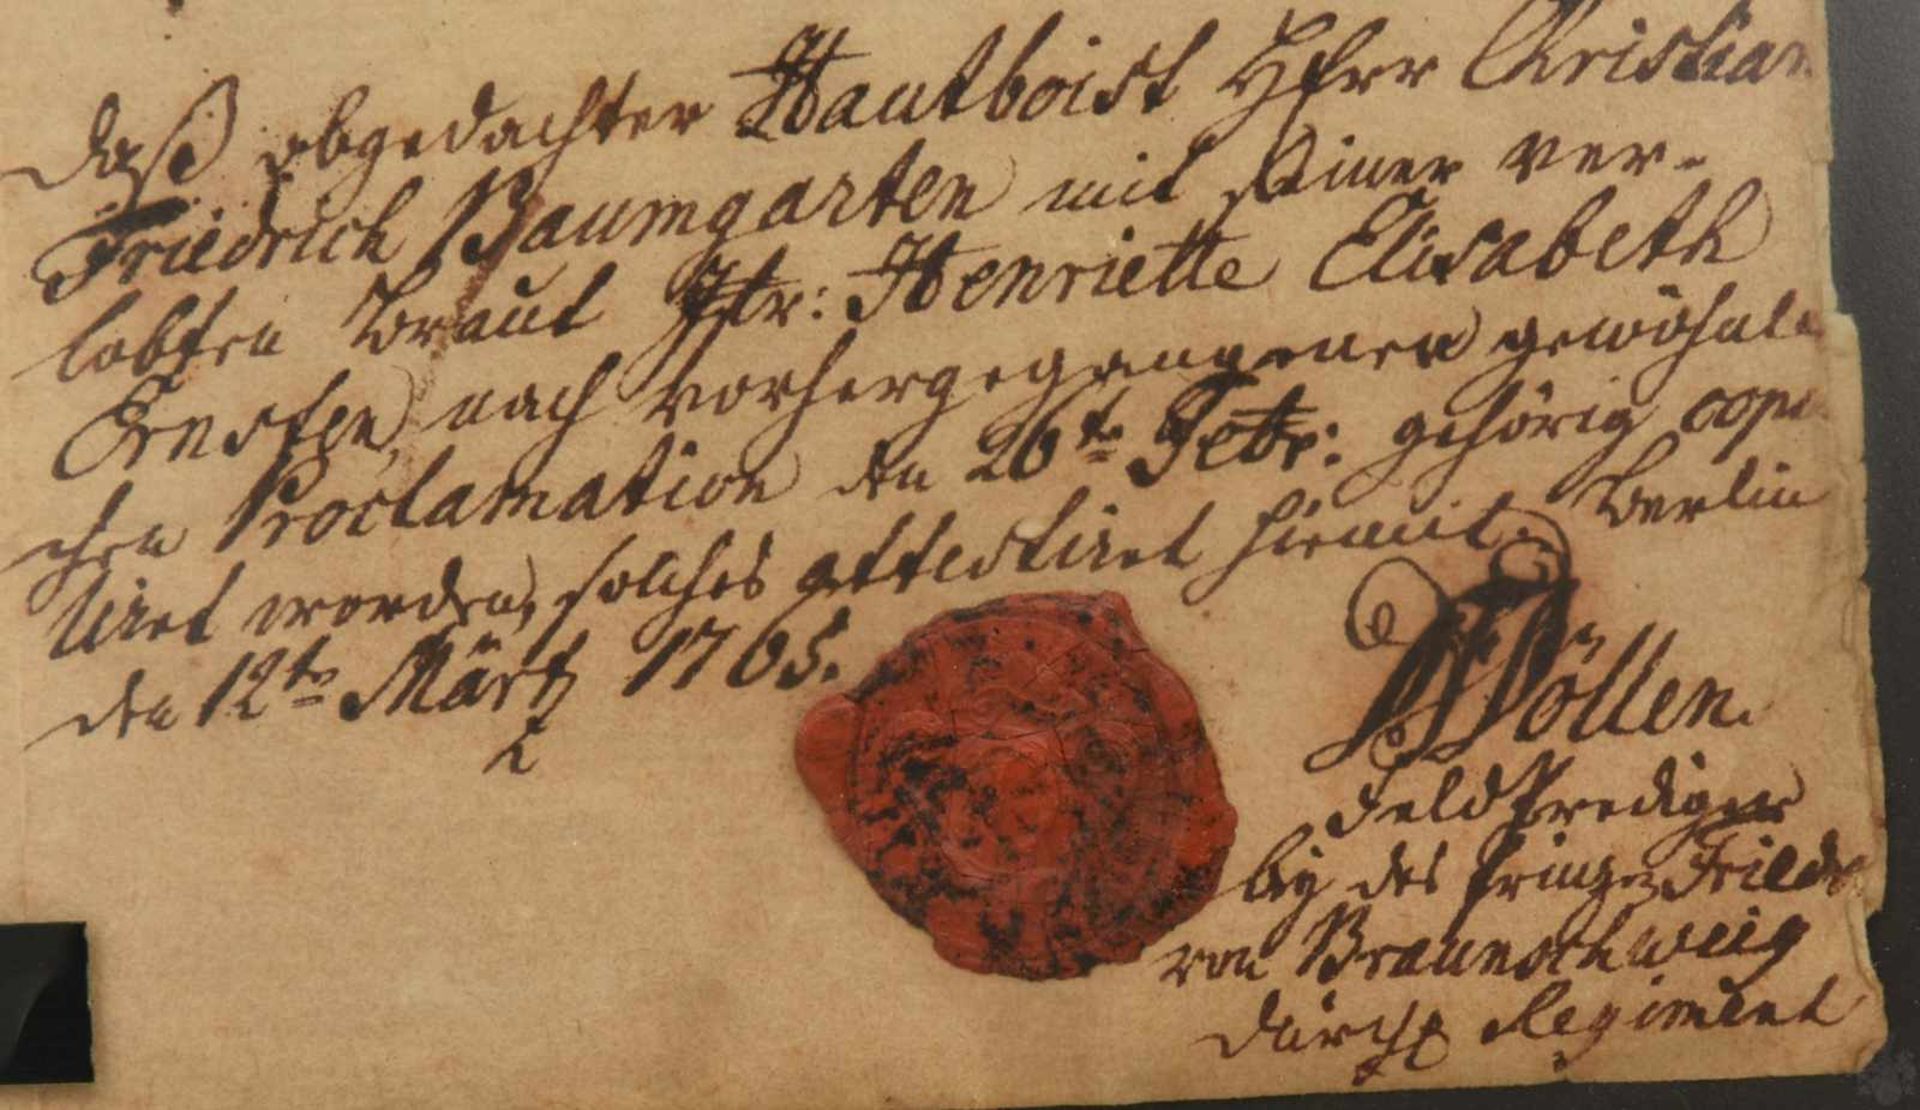 daß obgedachter Hautboist Herr Christian
Friedrich Baumgarten mit seiner ver-
lobten Braut Jfr: Henriette Elisabeth
Ernsten, nach vorhergegangener gewöhnli
chen Proclamation den 26ten Febr: gehörig copu
liret worden, solches attestiret hiemit. Berlin
den 12ten Märtz 1765.
Wöllen.
Feldprediger
bey des Prinzen Friedr
von Braunschweig
Durchl Regiment